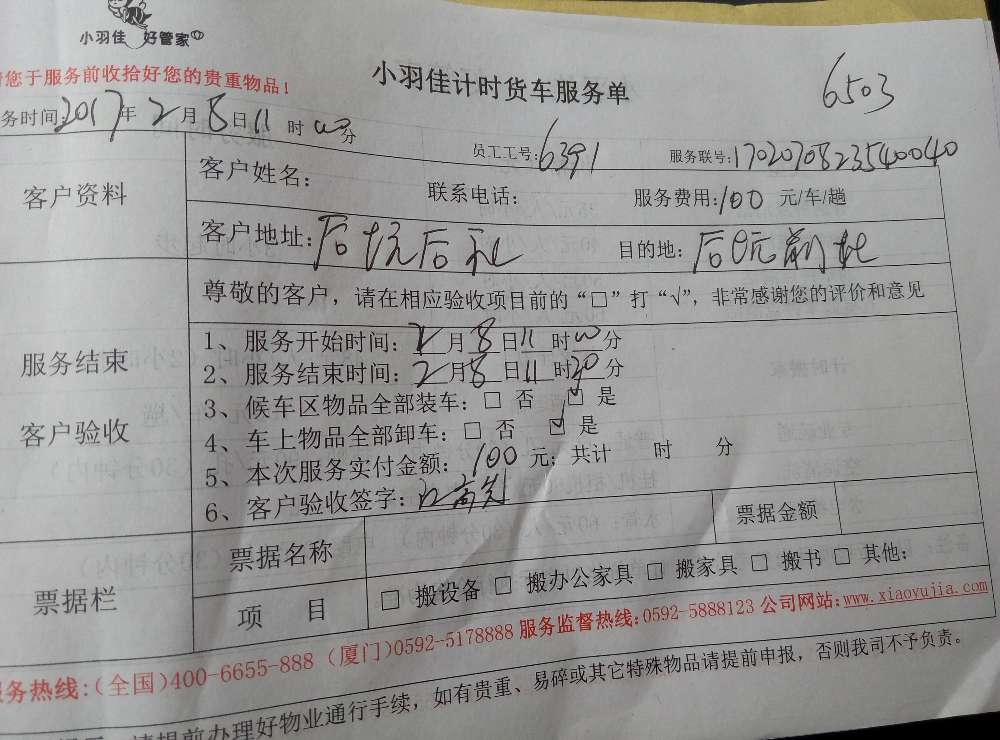 小羽佳 好管家
请您于服务前收拾好您的贵重物品！
小羽佳计时货车服务单
6503
务时间:2017年2月8日11时00分
员工工号:6391 服务联号:1702070823540040
客户资料
客户姓名： 联系电话： 服务费用:100 元/车/趟
客户地址:后坑后社 目的地:后坑前社
尊敬的客户，请在相应验收项目前的“□”打“√”，非常感谢您的评价和意见
服务结束
客户验收
1、服务开始时间：2月8日11时00分
2、服务结束时间：2月8日11时30分
3、候车区物品全部装车：□ 否 ☑ 是
4、车上物品全部卸车：□ 否 ☑ 是
5、本次服务实付金额：100元；共计 时 分
6、客户验收签字：
票据栏
票据名称 票据金额
项 目 □ 搬设备 □ 搬办公家具 □ 搬家具 □ 搬书 □ 其他：
服务热线:(全国)400-6655-888 (厦门)0592-5178888 服务监督热线:0592-5888123 公司网站:www.xiaoyujia.com
请提前办理好物业通行手续，如有贵重、易碎或其它特殊物品请提前申报，否则我司不予负责。